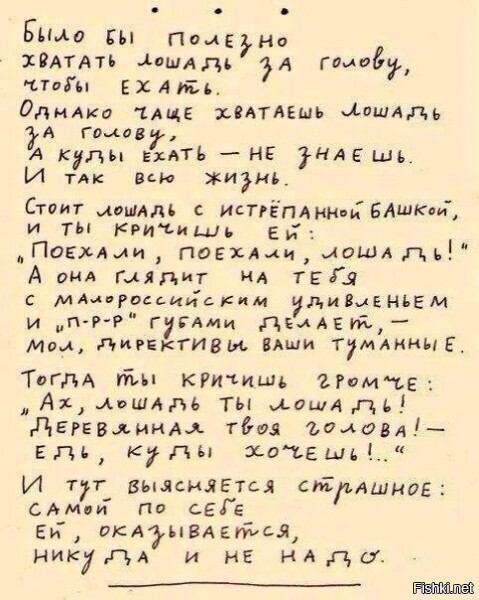 * * *
Было бы полезно
хватать лошадь за голову,
чтобы ехать.
Однако чаще хватаешь лошадь
за голову,
а куды ехать — не знаешь.
И так всю жизнь.
Стоит лошадь с истрёпанной башкой,
и ты кричишь ей:
„Поехали, поехали, лошадь!“
А она глядит на тебя
с малороссийским удивленьем
и „п-р-р“ губами делает, —
мол, директивы ваши туманные.
Тогда ты кричишь громче:
„Ах, лошадь ты лошадь!
Деревянная твоя голова! —
Едь, куды хочешь!..“
И тут выясняется страшное:
самой по себе
ей, оказывается,
никуда и не надо.
Fishki.net